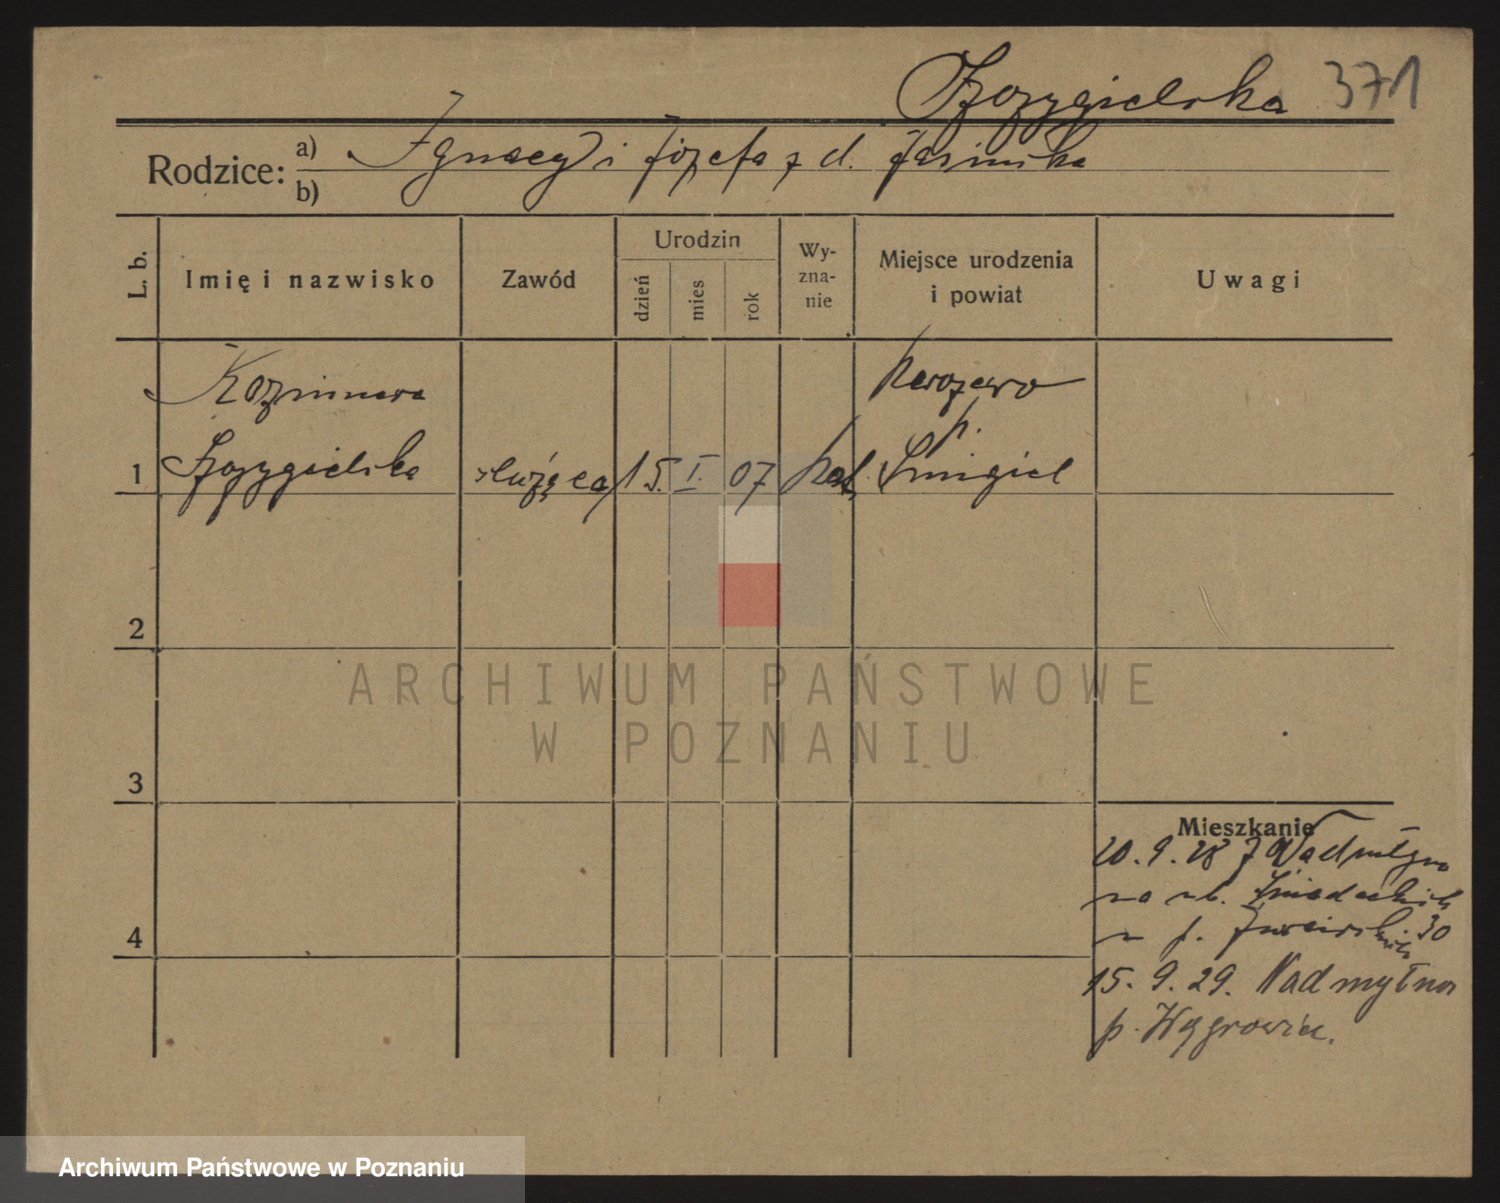 Szczygielska 371
Rodzice: a) Ignacy i Józefa z d. Jasińska
b)
L. b. Imię i nazwisko Zawód Urodzin dzień mies rok Wy-zna-nie Miejsce urodzenia i powiat Uwagi
Kazimiera
1 Szczygielska służąca 15. I. 07 kat. p. Śmigiel
2
ARCHIWUM PAŃSTWOWE
W POZNANIU
3
Mieszkanie
20. 9. 28 z Nadmłyna
na ul. Śniadeckich
30
4
15. 9. 29. Nadmłyn
p. Wągrowiec.
Archiwum Państwowe w Poznaniu